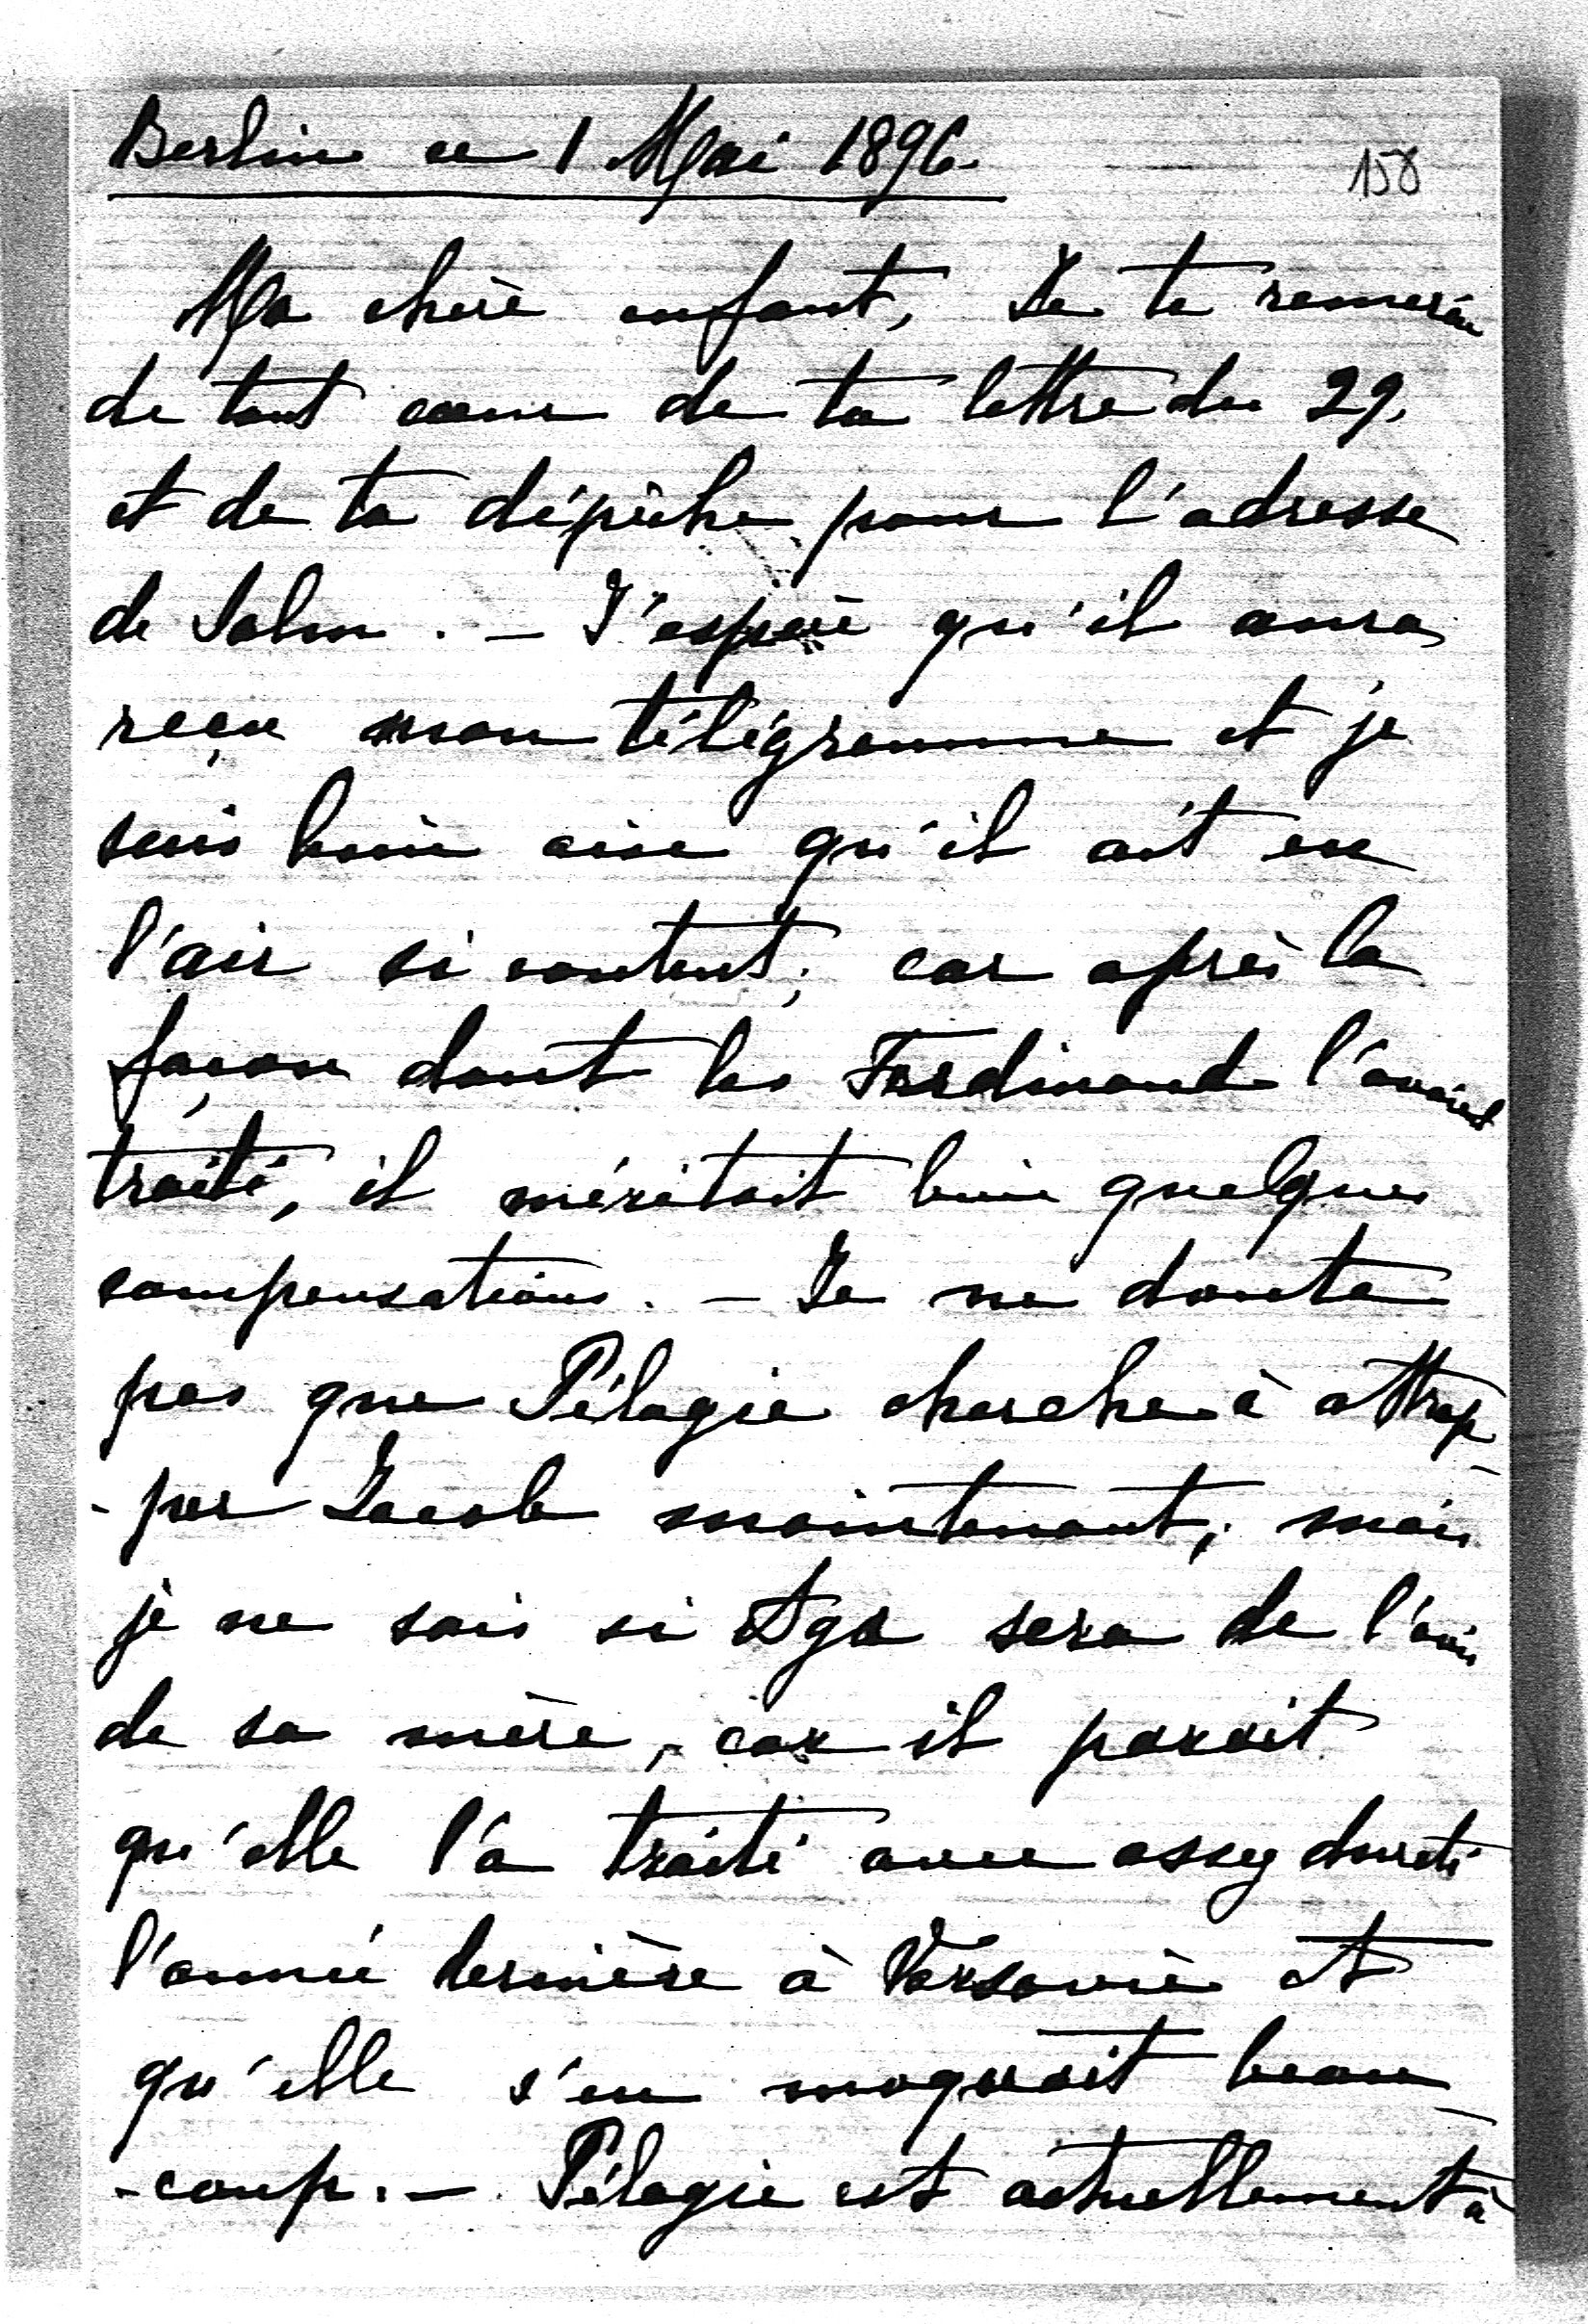 Berlin ce 1 Mai 1896.
158
Ma chère enfant, Je te remercie
de tout cœur de ta lettre du 29.
et de ta dépêche pour l'adresse
de Salm. – J'espère qu'il aura
reçu mon télégramme et je
suis bien aise qu'il ait eu
l'air si content; car après la
façon dont les Ferdinand l'avaient
traité, il méritait bien quelques
compensations. – Je ne doute
pas que Pélagie cherche à attrap-
-per Jacob maintenant; mais
je ne sais si Aga sera de l'avis
de sa mère, car il parait
qu'elle l'a traité avec assez dureté
l'année dernière à Varsovie et
qu'elle s'en moquait beau-
-coup. – Pélagie est actuellement à